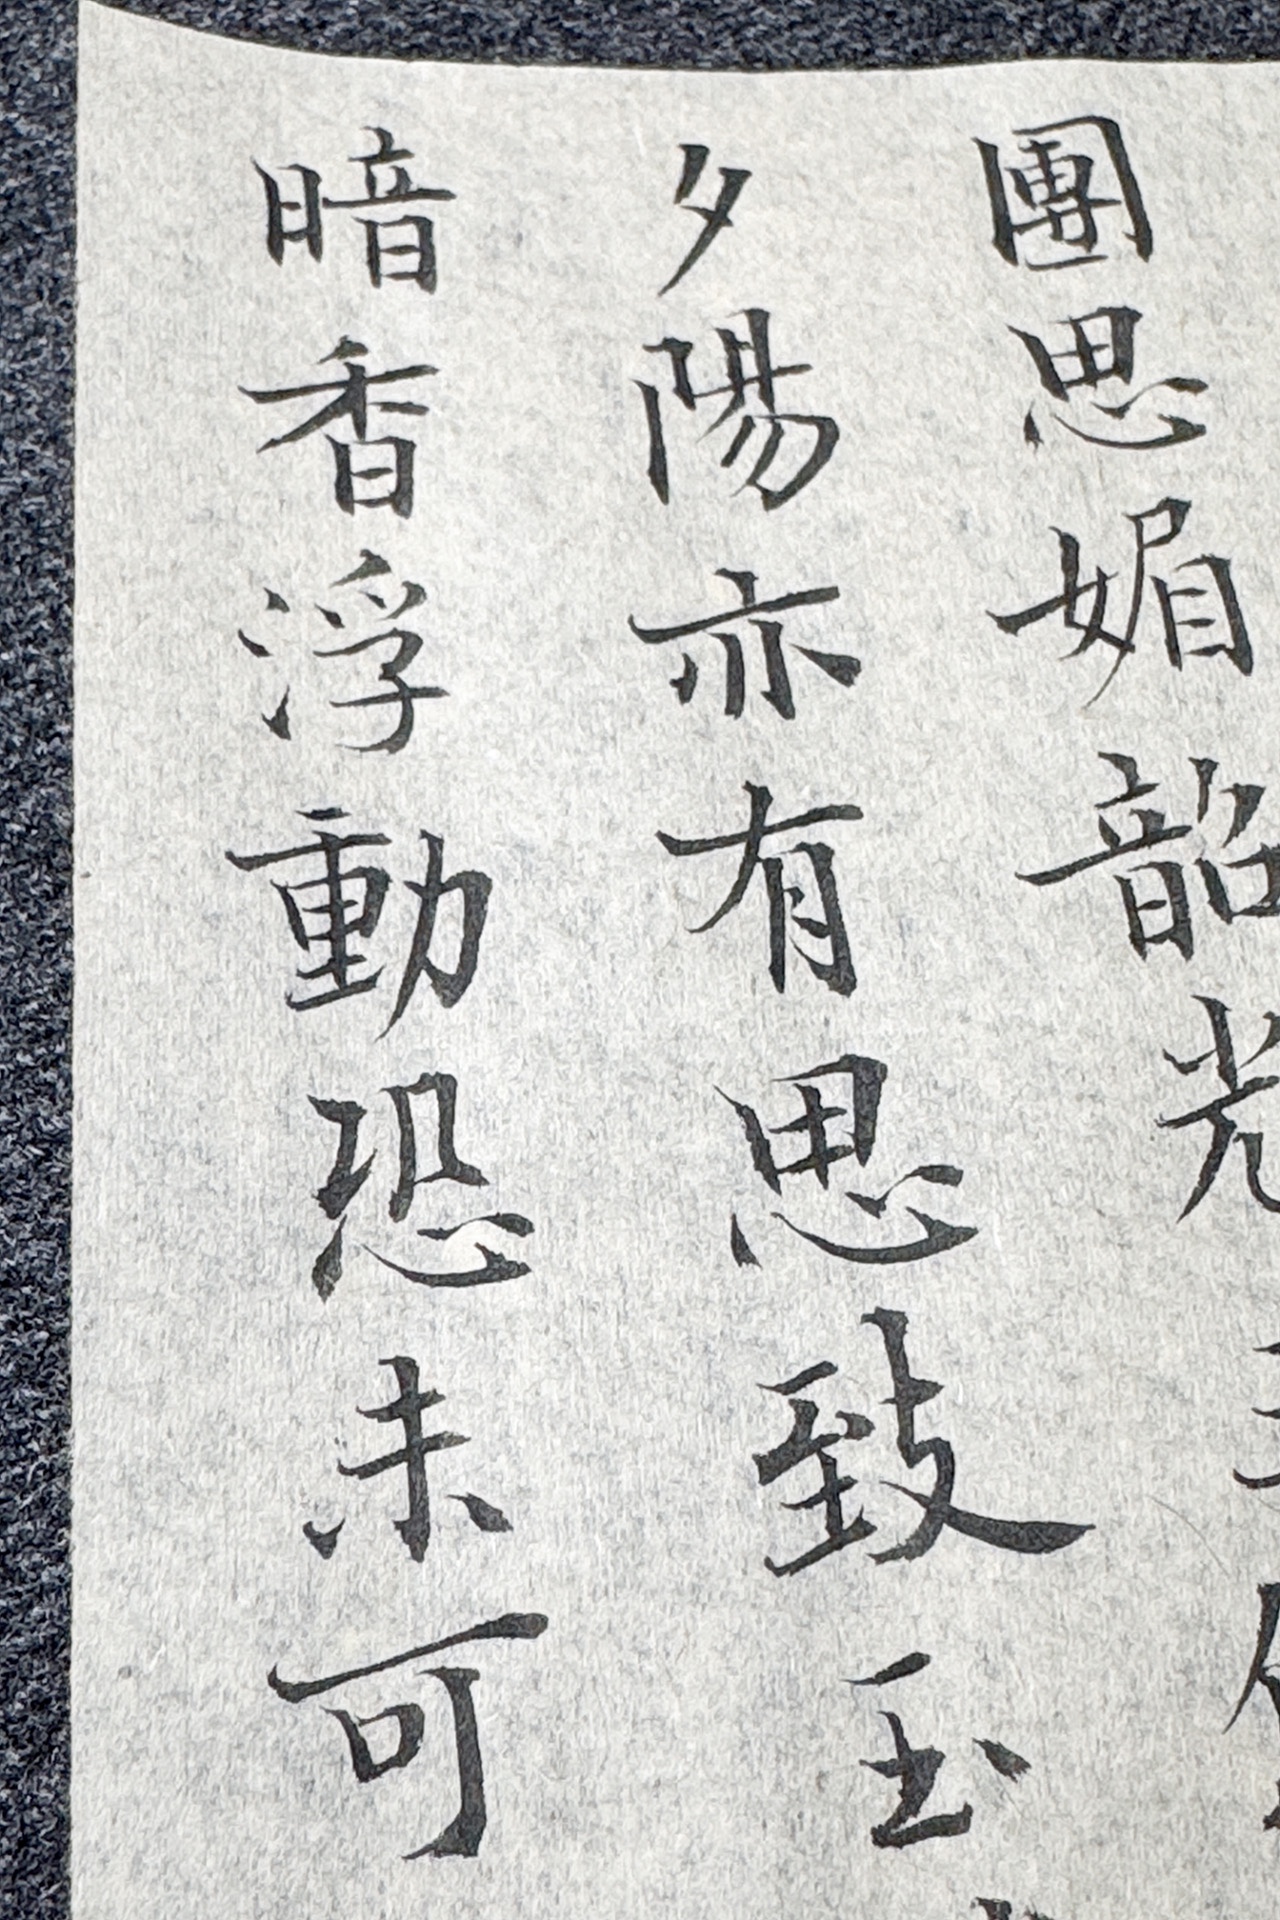 團思媚韶光
夕陽亦有思致玉
暗香浮動恐未可